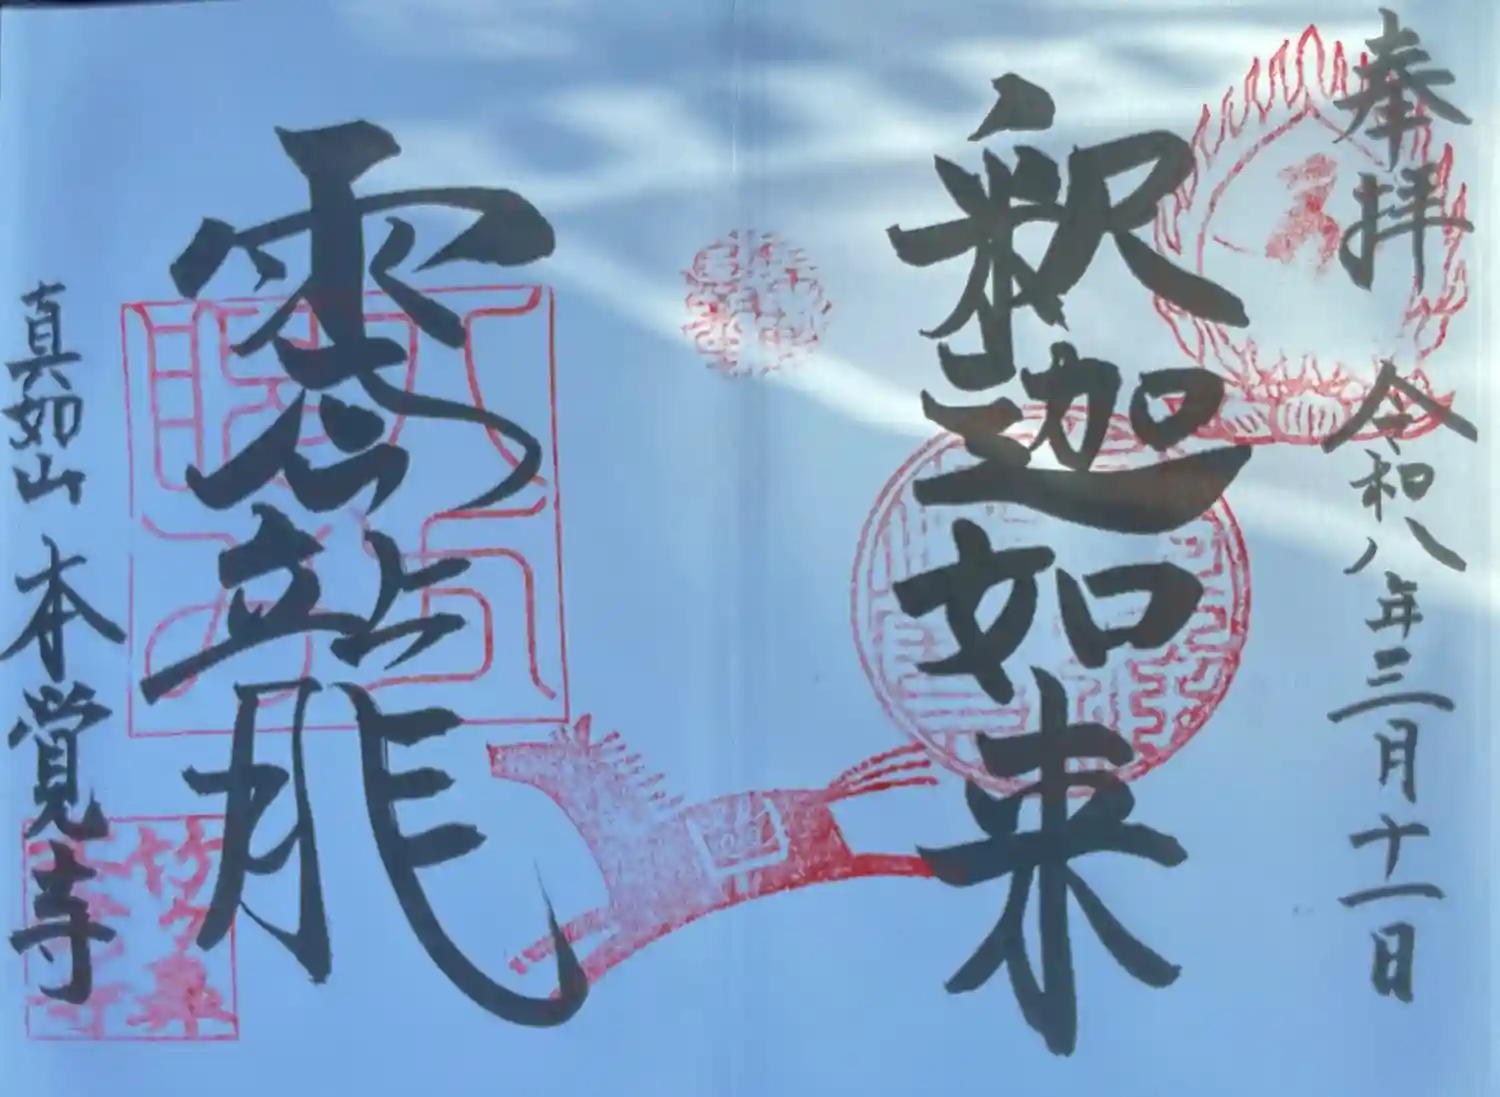 奉拝
令和八年三月十一日
釈迦如来
雲龍
真如山 本覚寺